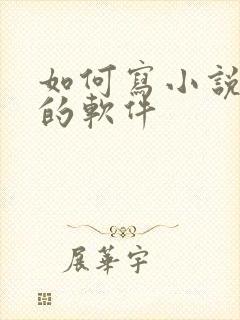 如何寫小說
的軟件
展華宇